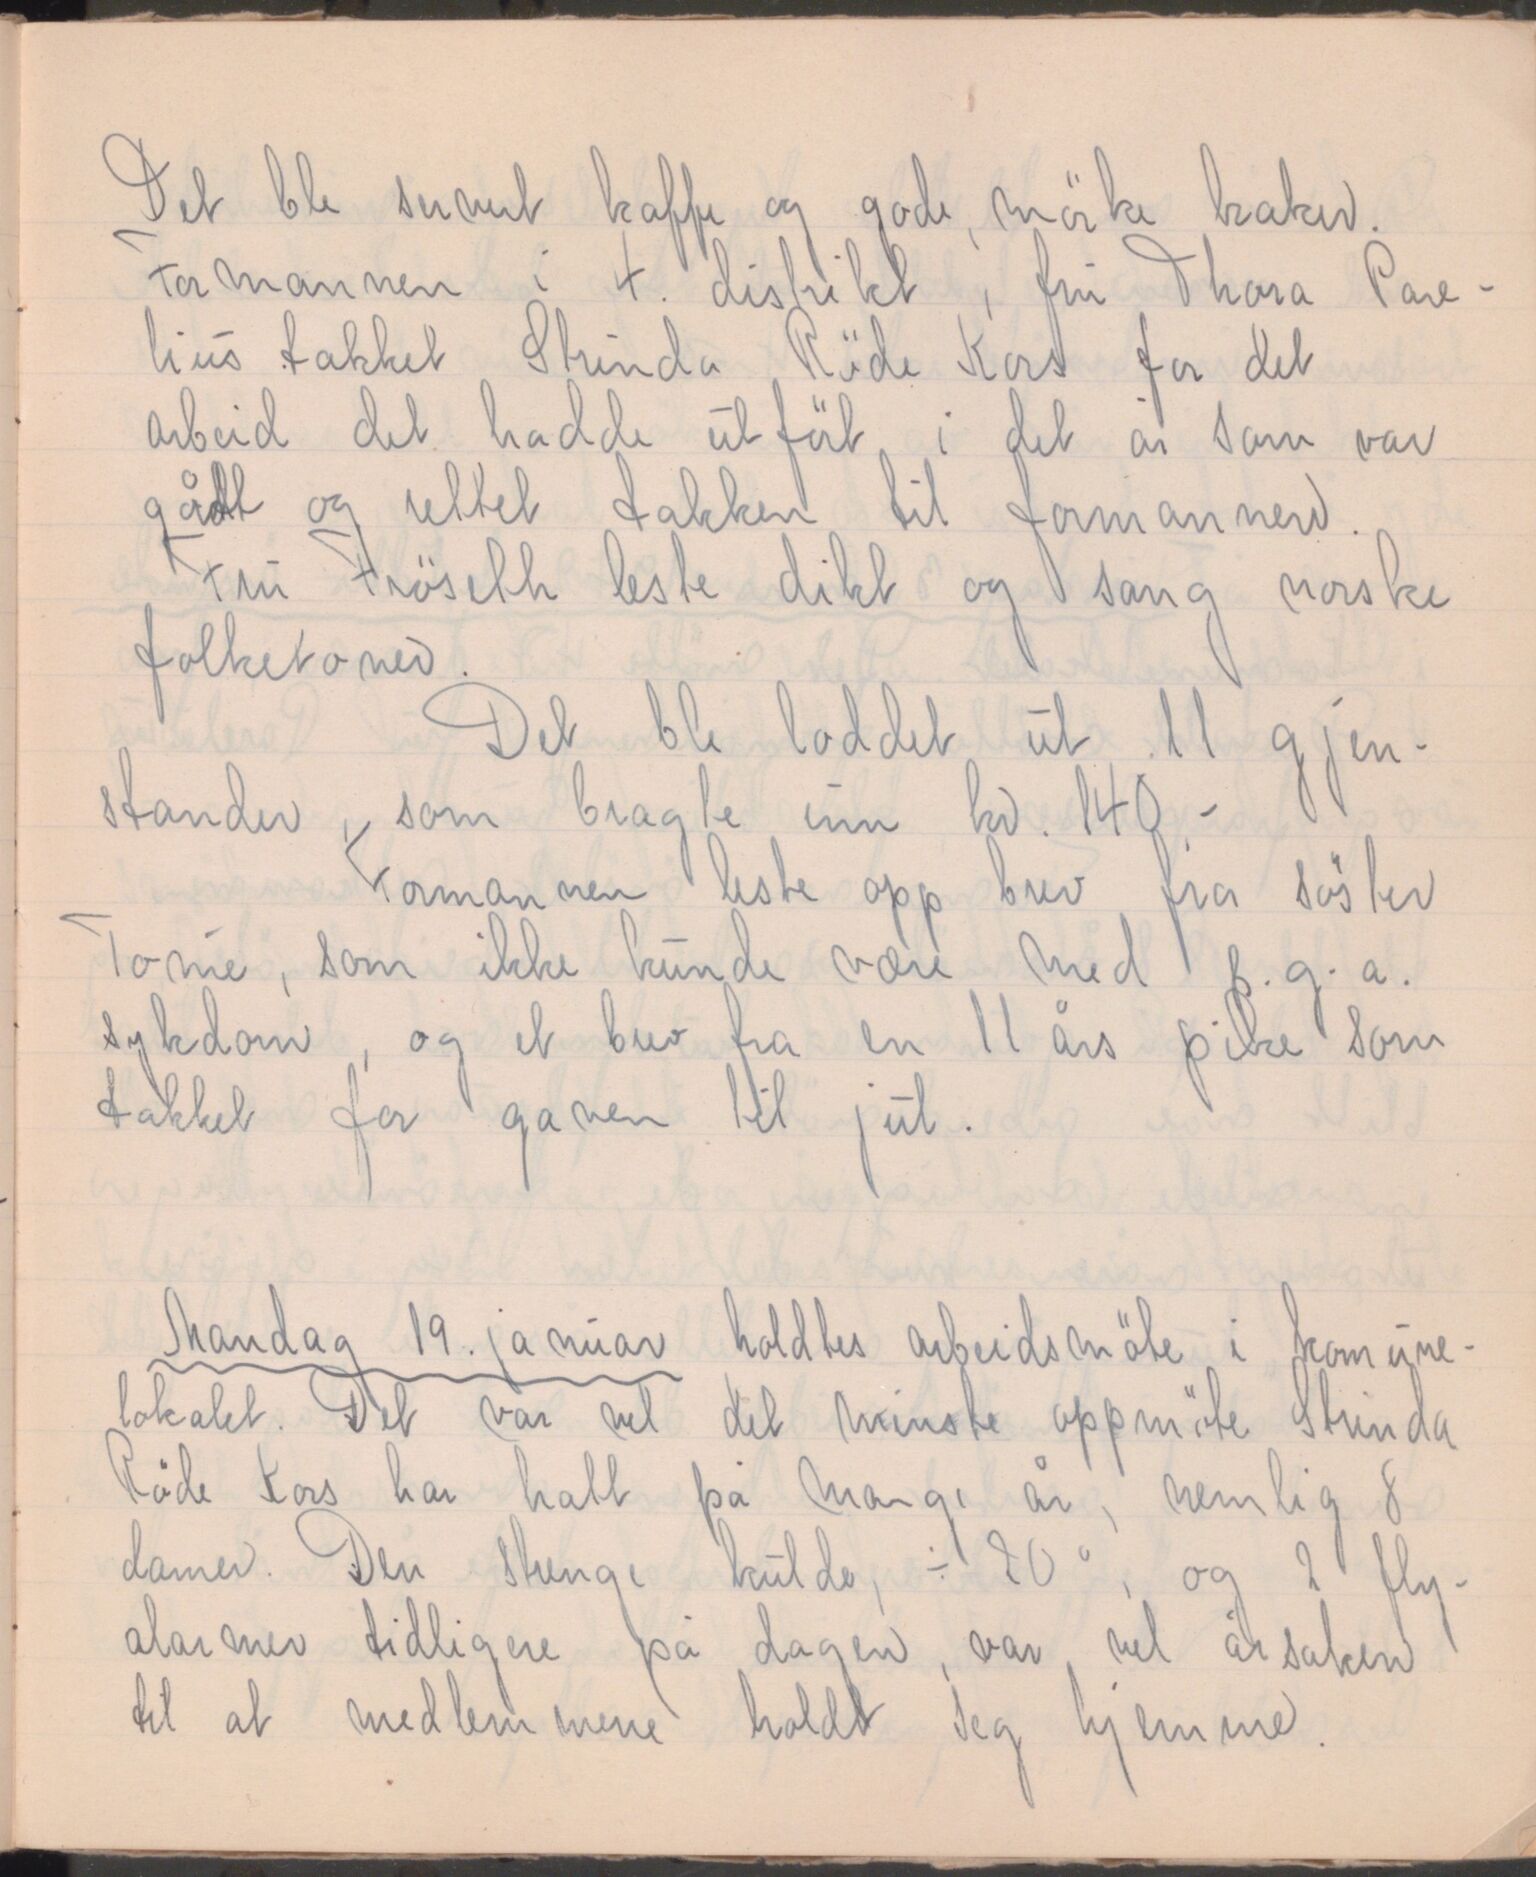 Det ble servert kaffe og gode, mörke kaker.
Formannen i 4. distrikt, fru Thora Pare-
lius takket Strinda Röde Kors for det
arbeid det hadde utfört i det år som var
gått og rettet takken til formannen.
Fru Fröseth leste dikt og sang norske
folketoner.
Det ble loddet ut 11 gjen-
stander, som bragte inn kr. 140.-
Formannen leste opp brev fra söster
Tonie, som ikke kunde være med p.g.a.
sykdom, og et brev fra en 11 års pike som
takket for gaven til jul.
Mandag 19. januar holdtes arbeidsmöte i komune-
lokalet. Det var vel det minste oppmöte Strinda
Röde Kors har hatt på mange år, nemlig 8
damer. Den strenge kulde, ÷ 20°, og 2 fly-
alarmer tidligere på dagen, var vel årsaken
til at medlemmene holdt seg hjemme.